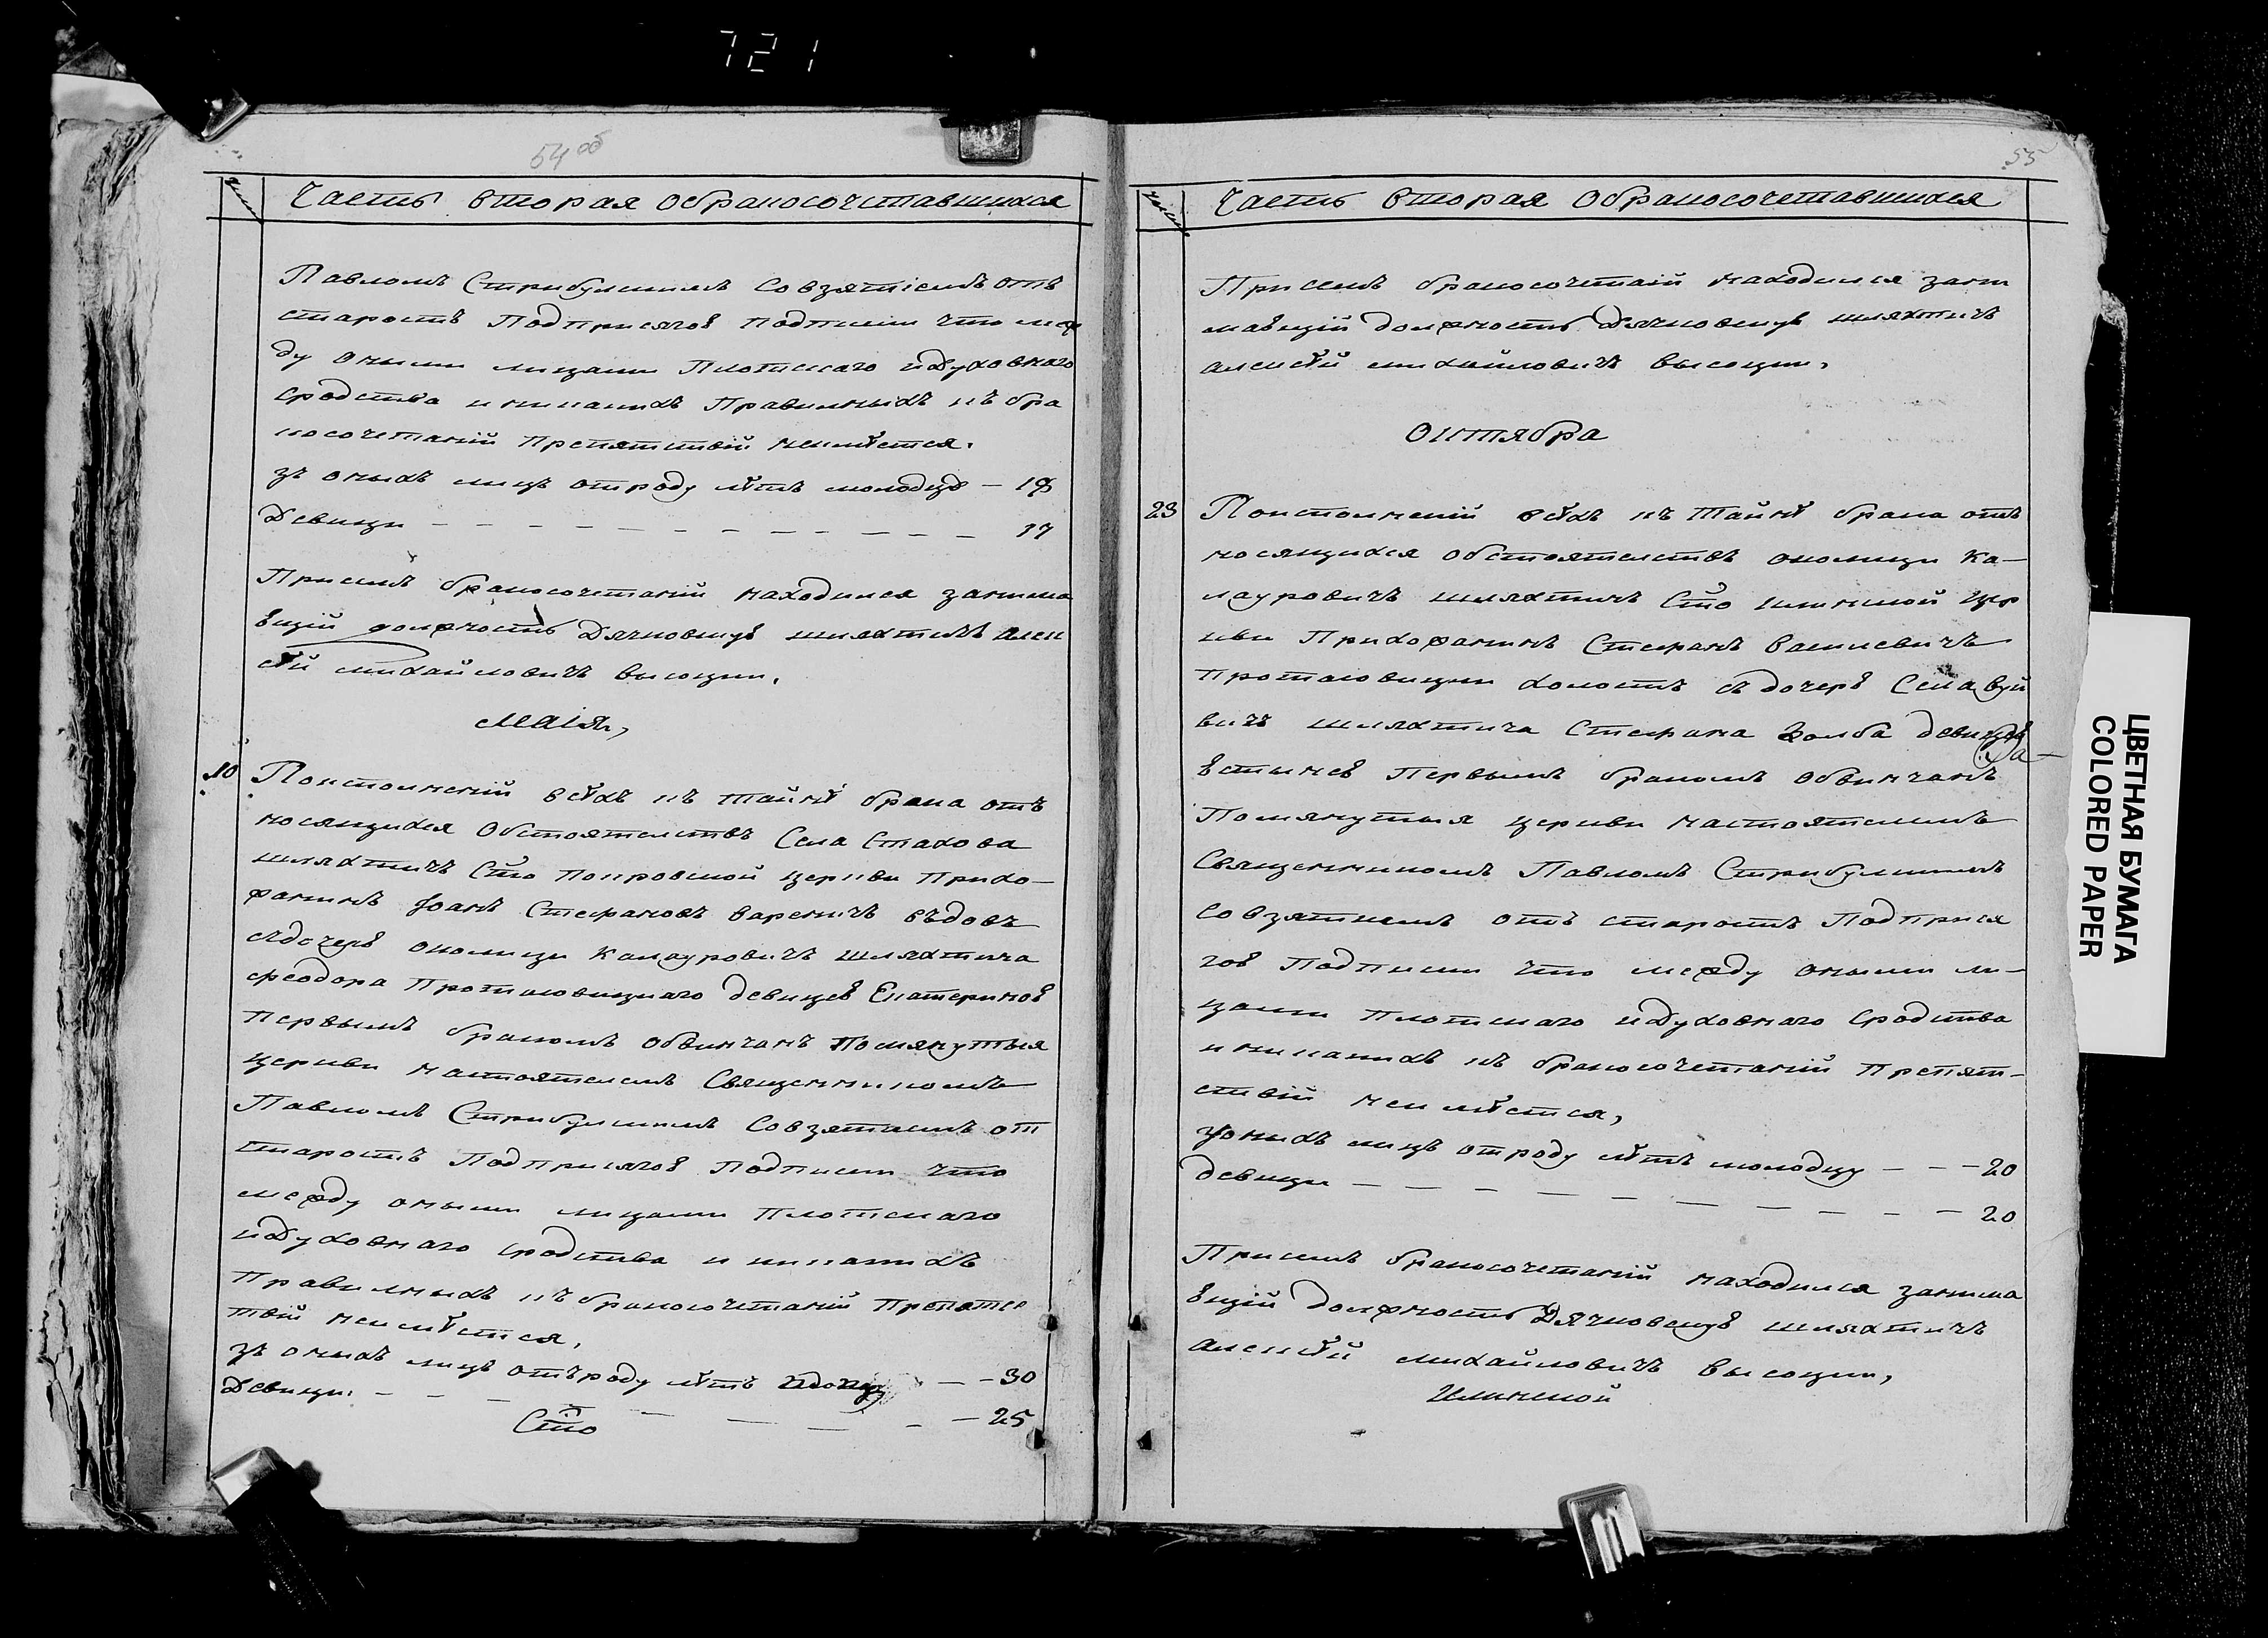 721
54 об
Часть вторая обракосочетавшихся
Павломъ Стрибульшимъ Совзятіемъ отъ
старостъ Подприсягов Подписки что меж
ду оными лицами Плотскаго идуховнаго
сродства и никакихъ Правильныхъ къ бра
косочетаній Препятствій неимѣется.
зъ оныхъ лицъ отроду лѣтъ молодцу — 18
Девици — — — — — — — — — — 17
Присемъ бракосочетаній находился занима
вшій должность Дячковску шляхтичъ алек
сѣй михайловичъ высоцки.
маія,
10
Поисполненій всѣхъ къ тайнѣ брака отъ
носящихся Обстоятелствъ Села Стахова
шляхтичъ Сто Покровской церкви Прихо—
жанинъ Іоанъ Стефановъ вареничъ въдовъ
съдочерѣ околици Калауровичъ шляхтича
феодора Протасовицкаго девицеѣ Екатериноѣ
Первымъ бракомъ обвинчанъ Помянутыя
церкви настоятелемъ Священникомъ
Павломъ Стрибульшимъ Совзятіемъ от
старостъ Подприсягов Подписки Что
между оными лицами Плотскаго
идуховнаго сродства и никакихъ
Правилныхъ къ бракосочетаній Препятс
твій неимѣется,
зъ оныхъ лицъ отъроду лѣтъ — — 30
Девици: — — — — — — — 25
Сто
55
Часть вторая Обракосочетавшихся
Присемъ бракосочетаній находился зани
мавшій должность Дячковску шляхтичъ
алексѣй михайловичъ высоцки,
октября
23
Поисполненій всѣхъ къ тайнѣ брака отъ
носящихся обстоятелствъ околици Ка—
лауровичъ шляхтичъ Сто Илинской цер
кви Прихожанинъ Стефанъ василевичъ
Протасовицки холостъ съ дочерѣ Села вуй
вичъ шляхтича Стефана Колба девицеѣ
Іу
встынеѣ Первымъ бракомъ обвинчанъ
Помянутыя церкви настоятелемъ
Священникомъ Павломъ Стрибульшимъ
совзятиемъ отъ старостъ Подприся
гов Подписки что между оными ли—
цами Плотскаго идуховнаго сродства
и никакихъ къ бракосочетаній Препят—
ствій неимѣется,
зоныхъ лицъ отроду лѣтъ молодцу — — — 20
девици — — — — — — — — — — 20
Присемъ бракосочетаній находился занима
вшій должность Дячковску шляхтичъ
алексѣй михайловичъ высоцки,
Илинской
ЦВЕТНАЯ БУМАГА
COLORED PAPER